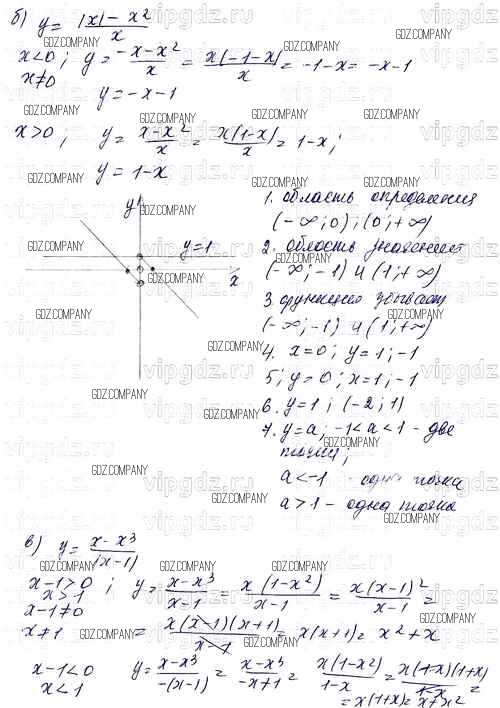 б) y = (|x| - x²)/x
x<0 ; y = (-x-x²)/x = x(-1-x)/x = -1-x = -x-1
x≠0
y = -x-1
x>0 ; y = (x-x²)/x = x(1-x)/x = 1-x ;
y = 1-x
y
y=1
x
1. область определения
(-∞;0) , (0;+∞)
2. область значений
(-∞;-1) и (1;+∞)
3. функция убывает
(-∞;-1) и (1;+∞)
4. x=0; y=1; -1
5; y=0; x=1; -1
6. y=1 ; (-2; 1)
7. y=a; -1<a<1 - две
точки;
a<-1 - одна точка
a>1 - одна точка
в) y = (x-x³)/|x-1|
x-1>0 ; y = (x-x³)/(x-1) = x(1-x²)/(x-1) = x(x-1)²/(x-1) =
x>1
x-1≠0
x≠1 = x(x-1)(x+1)/(x-1) = x(x+1) = x²+x
x-1<0 y = (x-x³)/-(x-1) = (x-x³)/(-x+1) = x(1-x²)/(1-x) = x(1-x)(1+x)/(1-x) =
x<1
= x(1+x) = x+x²
GDZ.COMPANY
vipgdz.ru